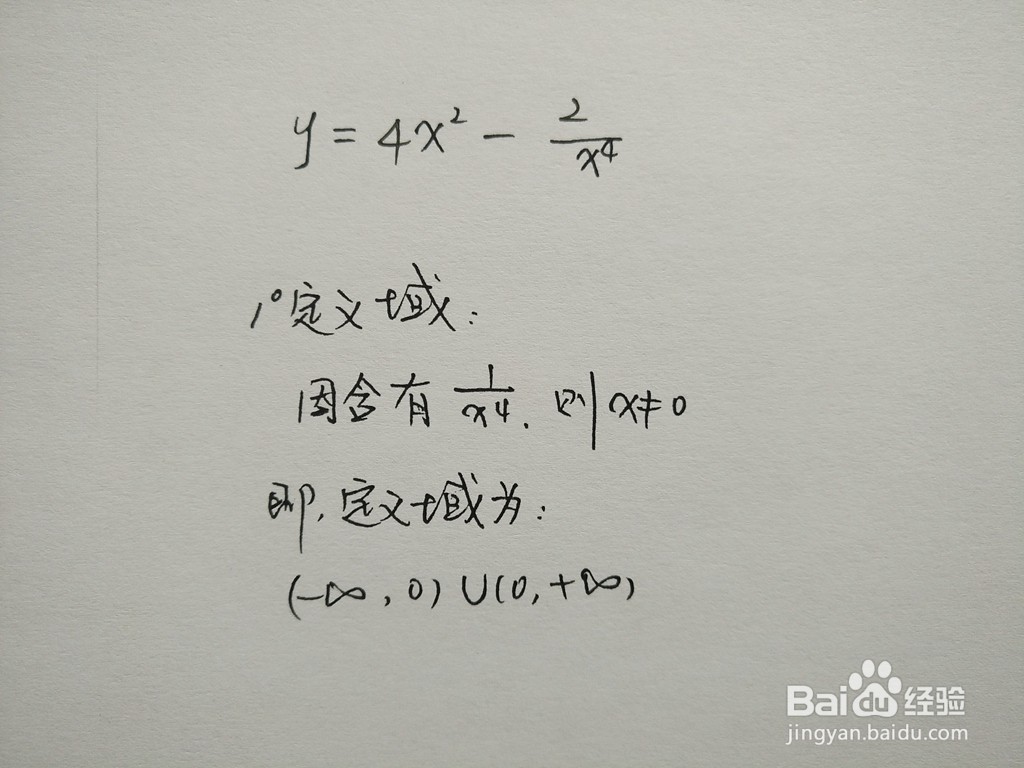 y = 4x² - 2/x⁴
1° 定义域:
因含有 1/x⁴. 则 x≠0
即, 定义域为:
(-∞, 0) ∪ (0, +∞)
Bai du 经验
jingyan.baidu.com